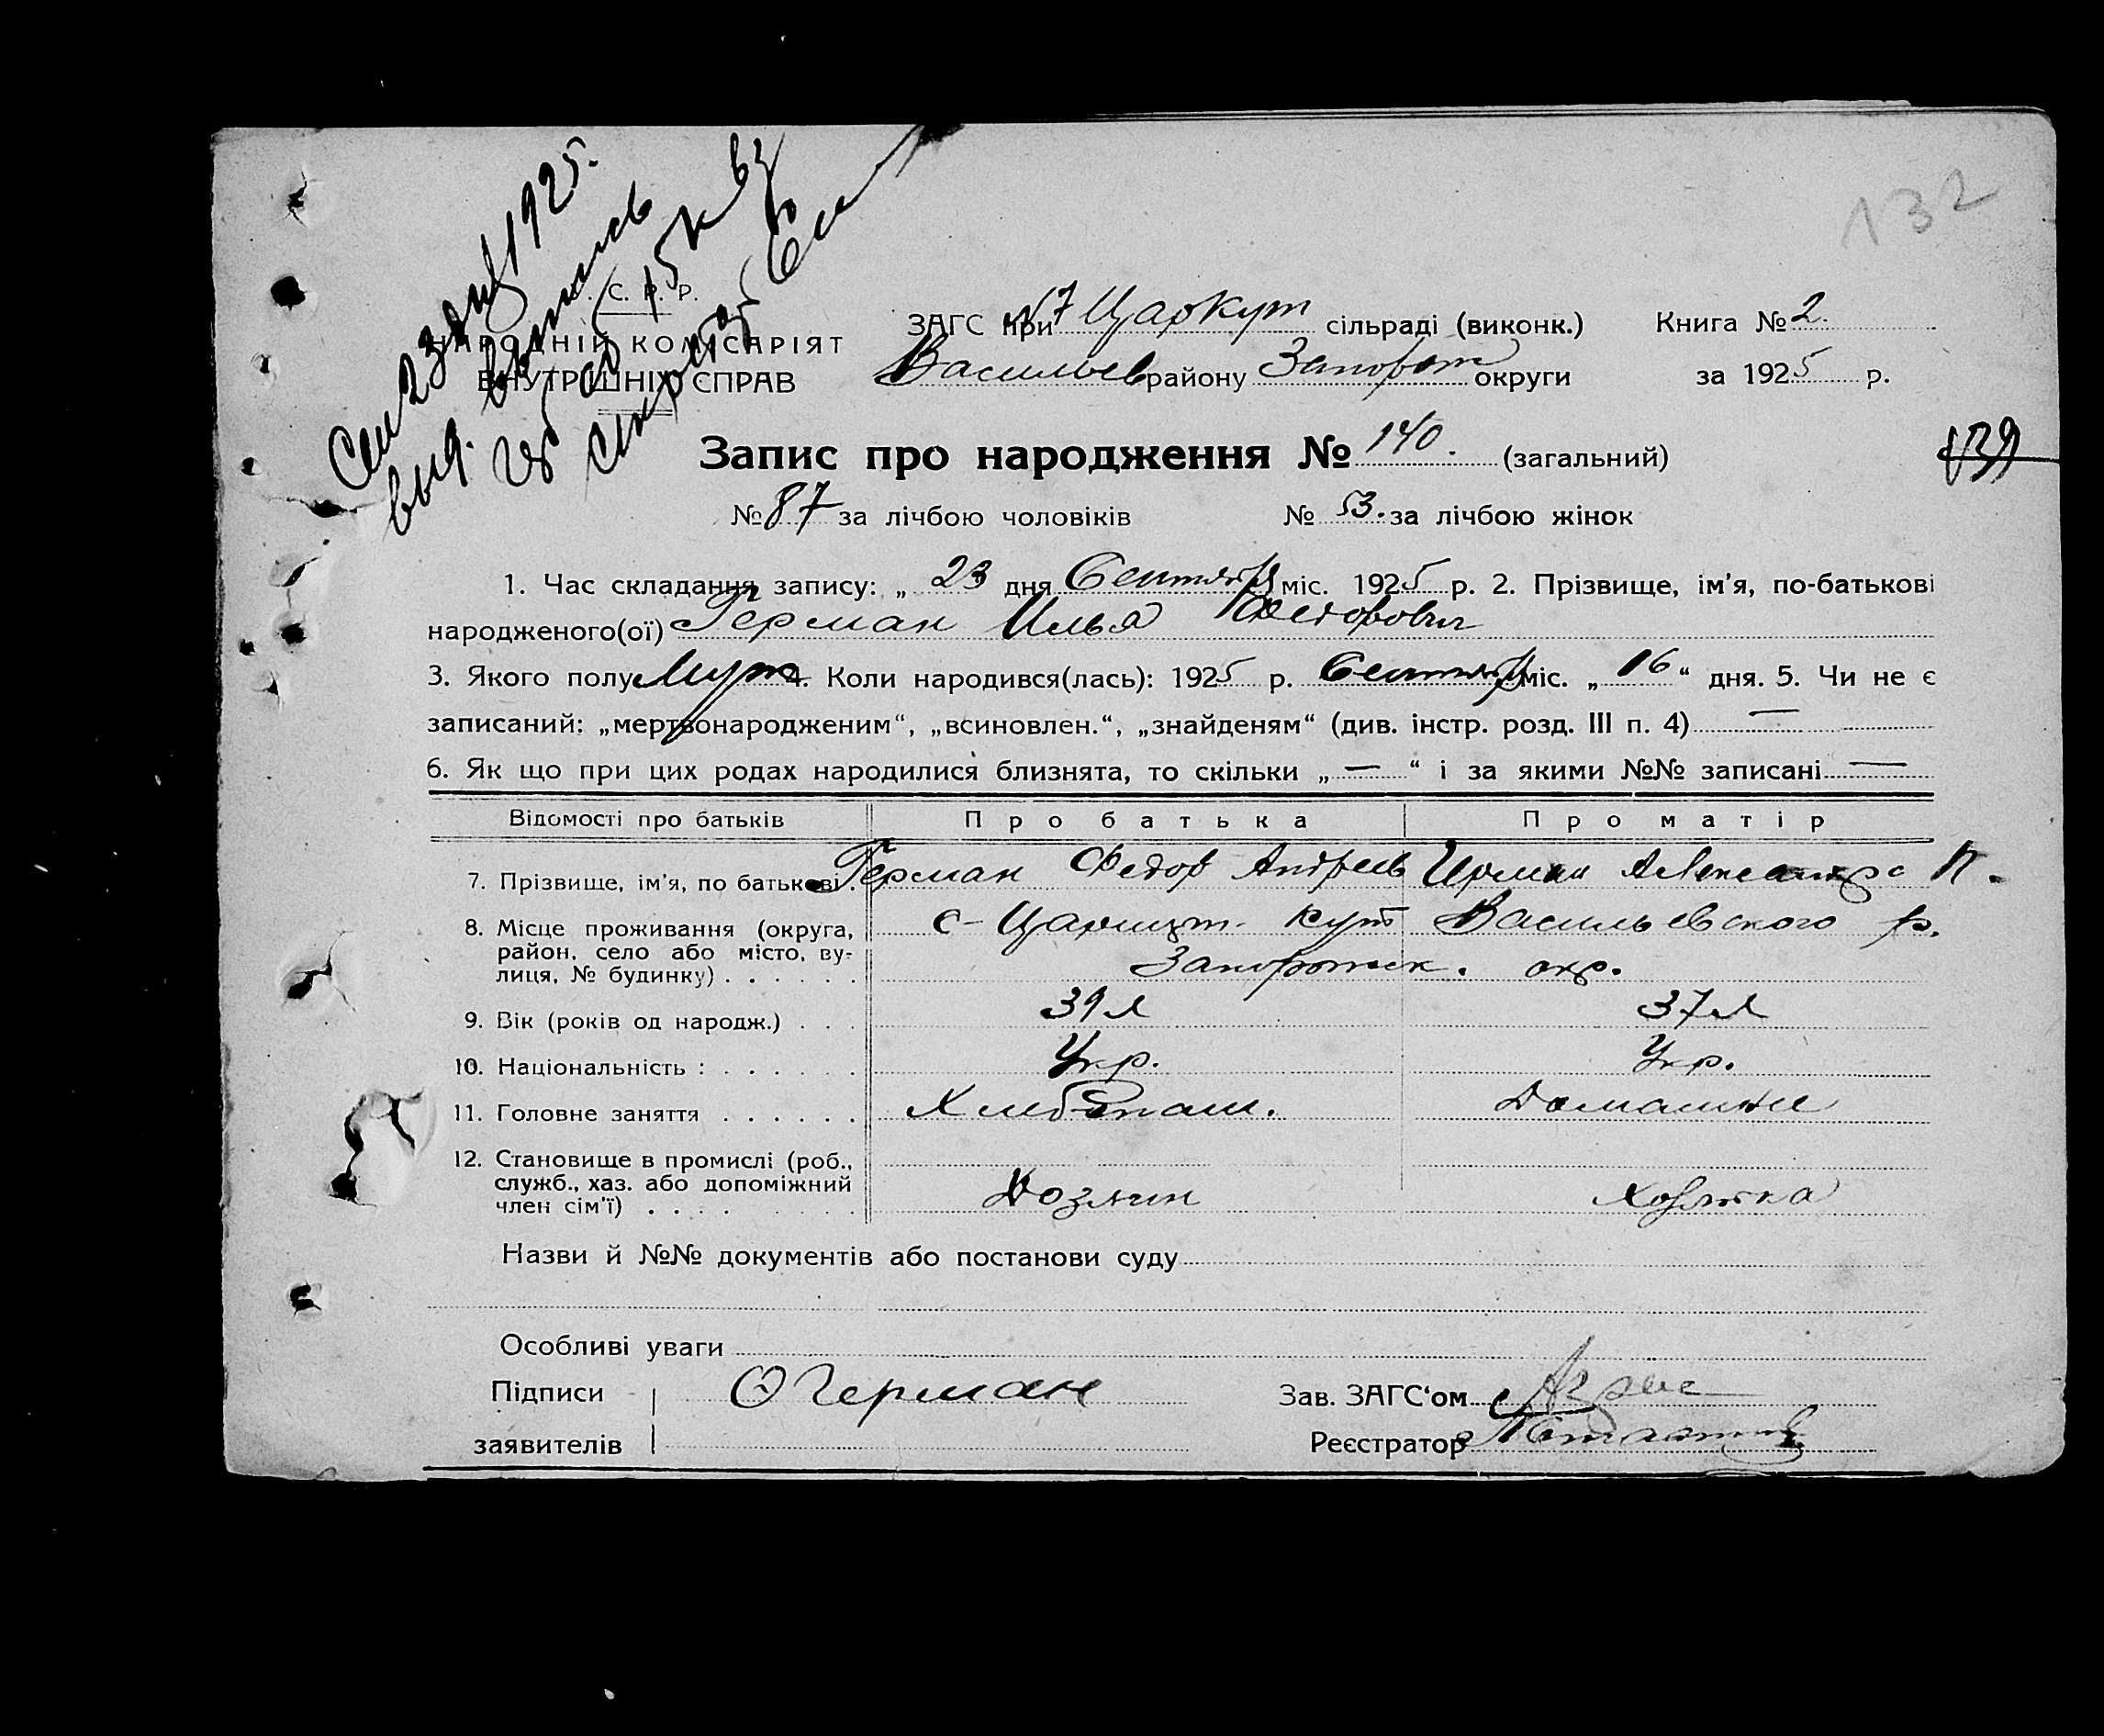 Сен 23 дня 1925.
выд. выпись
132
С. Р. Р.
НАРОДНІЙ КОМІСАРІЯТ
ВНУТРІШНІХ СПРАВ
ЗАГС при №7 Царкут сільраді (виконк.) Книга № 2.
Васильев району Запорож округи за 1925 р.
Запис про народження № 140. (загальний)
139
№ 87 за лічбою чоловіків № 53. за лічбою жінок
1. Час складання запису: „ 23 дня Сентября міс. 1925 р. 2. Прізвище, ім’я, по-батькові
народженого(ої) Герман Илья Федорович
3. Якого полу Муж 4. Коли народився(лась): 1925 р. Сентября міс. „ 16 “ дня. 5. Чи не є
записаний: „мертвонародженим“, „всиновлен.“, „знайденям“ (див. інстр. розд. III п. 4) —
6. Як що при цих родах народилися близнята, то скільки „ — “ і за якими №№ записані —
Відомості про батьків Про батька Про матір
7. Прізвище, ім’я, по батькові . Герман Федор Андреев Герман Александра П.
8. Місце проживання (округа, район, село або місто, вулиця, № будинку) . . . . . . с- Царицын. Кут Васильевского р.
Запорожск. окр.
9. Вік (років од народж.) . . . 39 л 37 л
10. Національність : . . . . . . Укр. Укр.
11. Головне заняття . . . . . . Хлебопаш. Домашнее
12. Становище в промислі (роб., служб., хаз. або допоміжний член сім’ї) . . . . Хозяин Хозяйка
Назви й №№ документів або постанови суду
Особливі уваги
Підписи Ф Герман Зав. ЗАГС‘ом
заявителів Реєстратор